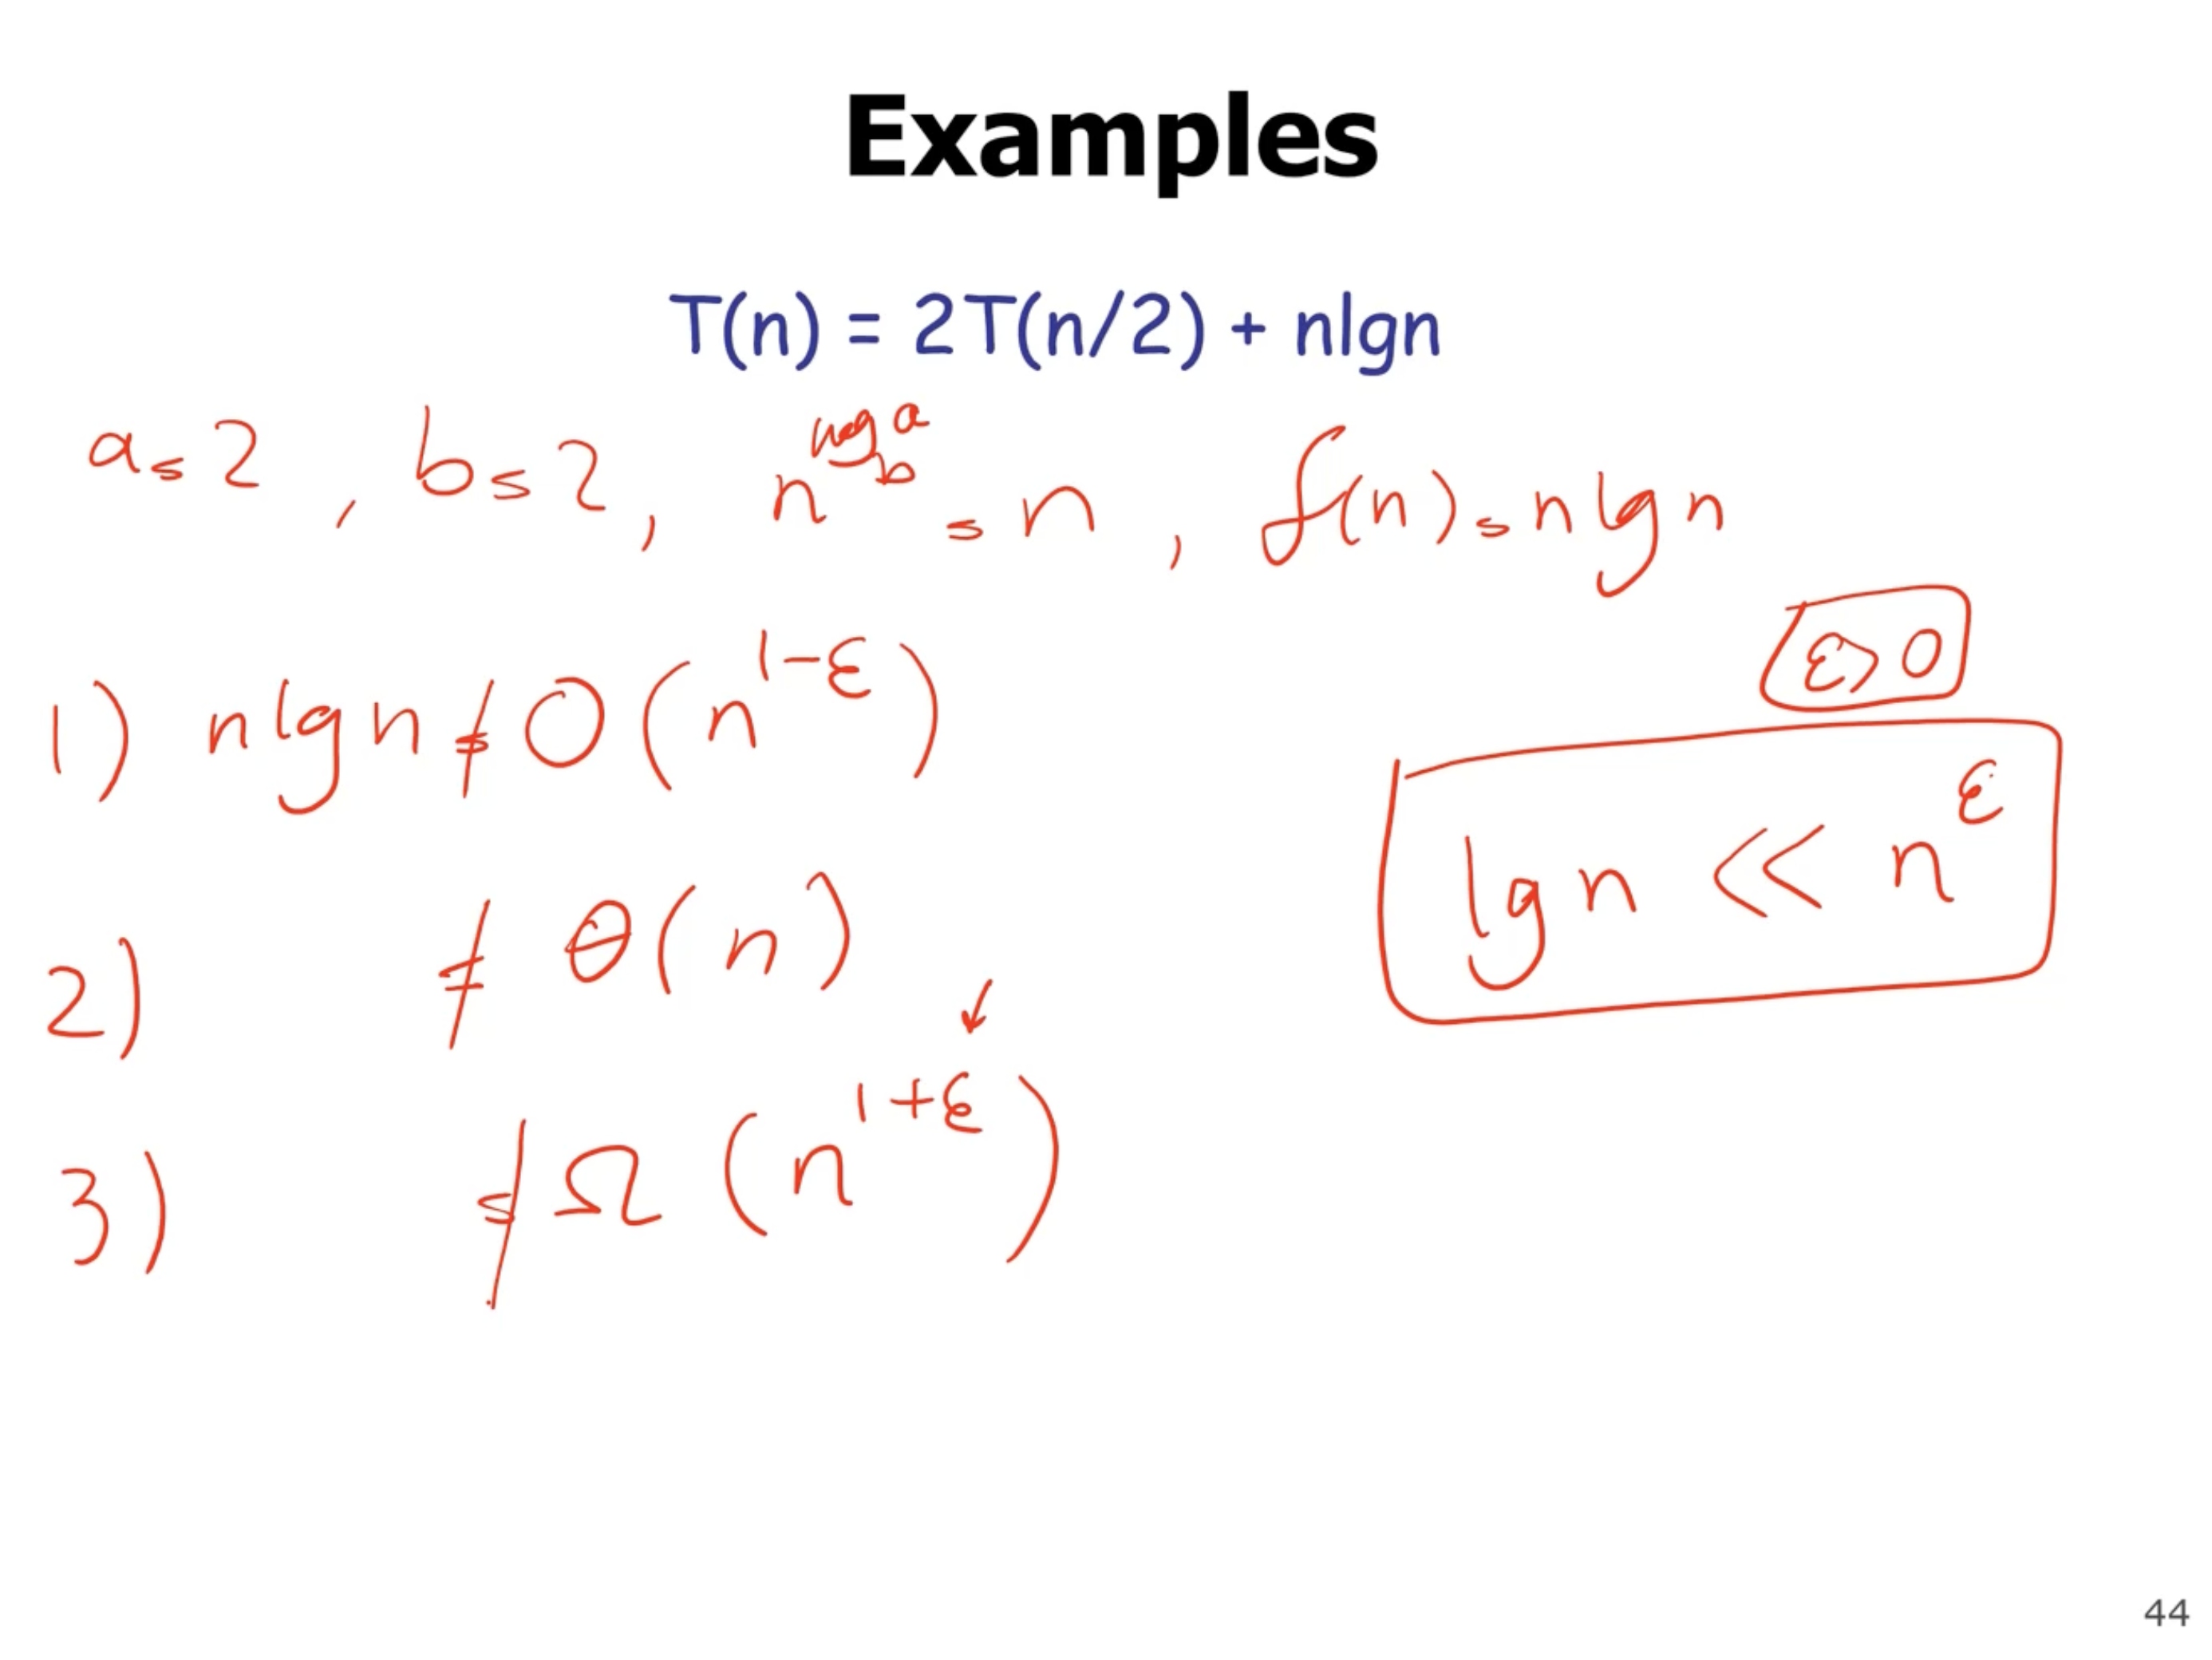 Examples
T(n) = 2T(n/2) + nlgn
a = 2 , b = 2 , n^{log_b a} = n , f(n) = n lg n
ε > 0
1) n lg n ≠ O(n^{1-ε})
lg n << n^ε
2) ≠ θ(n)
3) ≠ Ω(n^{1+ε})
44